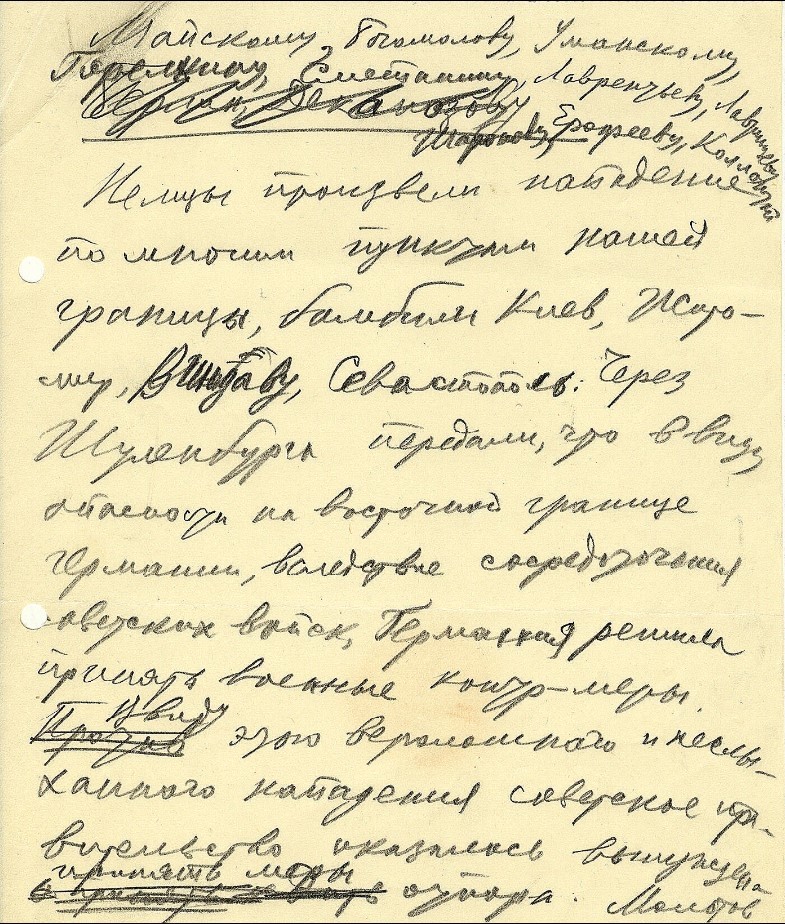 Майскому, Богомолову, Уманскому,
Горелкину, Сметанину, Лаврентьеву, Лаврищеву,
Деканозову
Шаронову, Ерофееву, Коллонтай
Немцы произвели нападение
по многим пунктам нашей
границы, бомбили Киев, Жито-
мир, Севастополь. Через
Шуленбурга передали, что ввиду
опасности на восточной границе
Германии, вследствие сосредоточения
советских войск, Германия решила
принять военные контр-меры.
Ввиду
этого вероломного и неслы-
ханного нападения советское пра-
вительство оказалось вынуждено
принять меры
отпора. Молотов